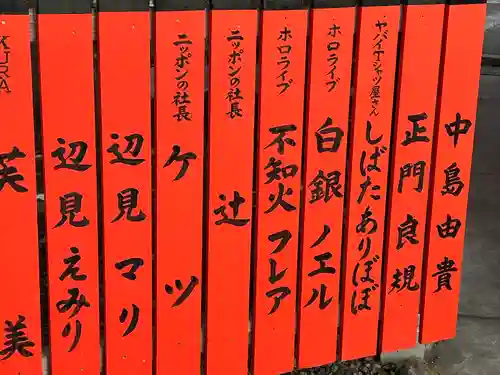 中島由貴
正門良規
ヤバイTシャツ屋さん
しばたありぼぼ
ホロライブ
白銀ノエル
ホロライブ
不知火フレア
ニッポンの社長
辻
ニッポンの社長
ケツ
辺見マリ
辺見えみり
KURA
芙美